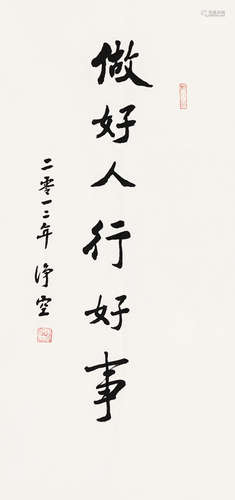 做好人行好事
二零一二年 净空